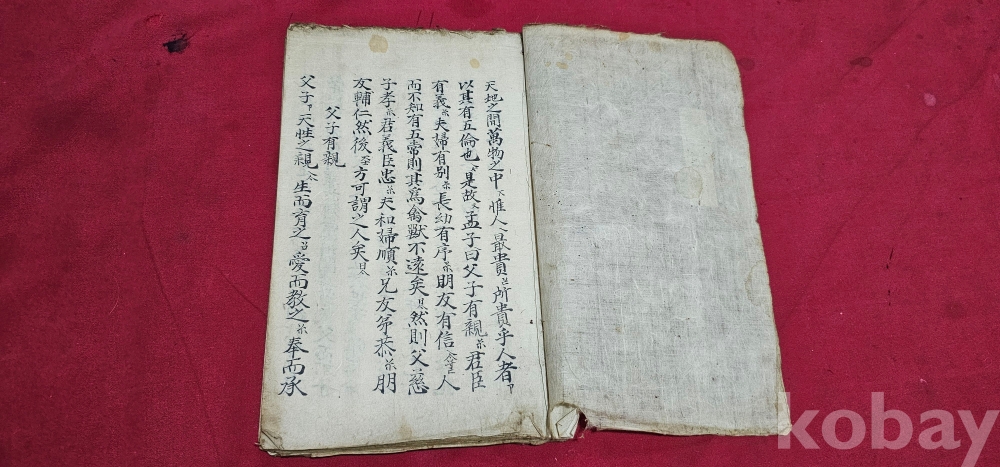 天地之間萬物之中惟人最貴所貴乎人者
以其有五倫也是故孟子曰父子有親君臣
有義夫婦有别長幼有序朋友有信人
而不知有五常則其爲禽獸不遠矣然則父慈
子孝君義臣忠夫和婦順兄友弟恭朋
友輔仁然後方可謂之人矣
父子有親
父子天性之親生而育之愛而教之奉而承
kobay